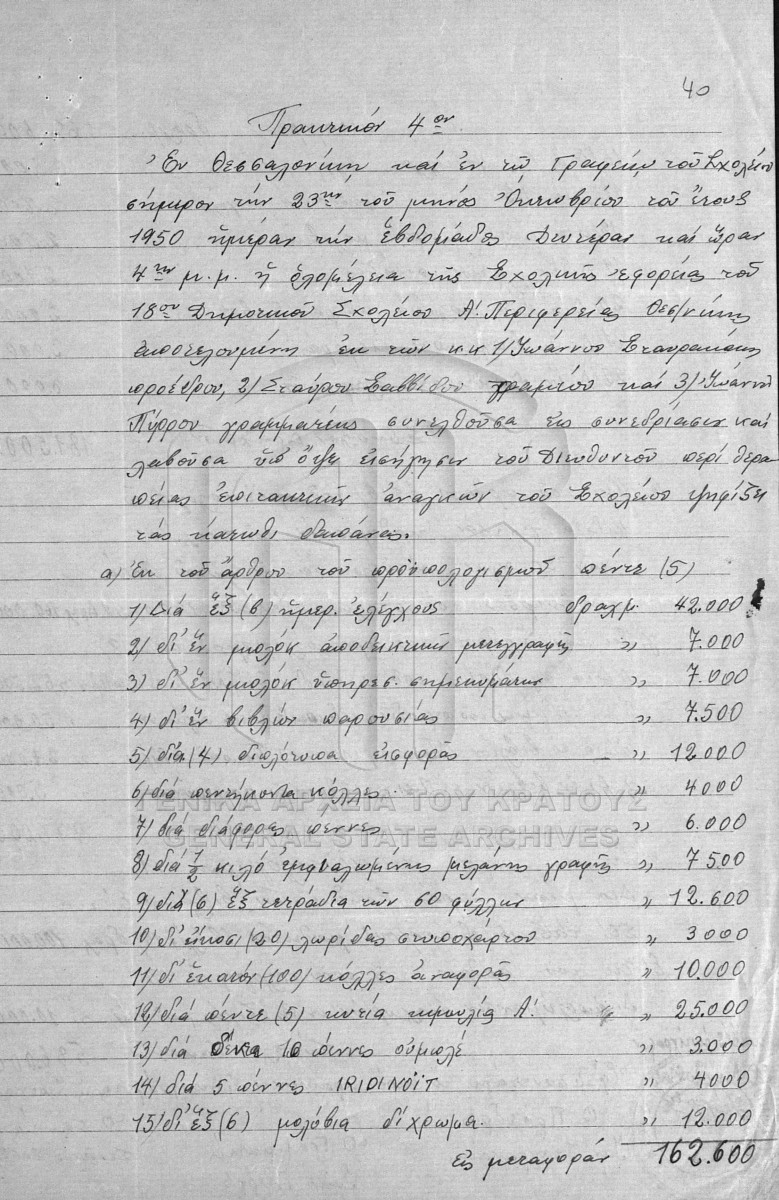 40
Πρακτικόν 4ον
Ἐν Θεσσαλονίκῃ καί ἐν τῷ Γραφείῳ τοῦ Σχολείου
σήμερον τήν 23ην τοῦ μηνός Ὀκτωβρίου τοῦ ἔτους
1950 ἡμέραν τῆς ἑβδομάδος Δευτέραν καί ὥραν
4ην μ.μ. ἡ ὁλομέλεια τῆς Σχολικῆς ἐφορείας τοῦ
18ου Δημοτικοῦ Σχολείου Α! Περιφερείας Θεσ/νίκης
ἀποτελουμένη ἐκ τῶν κ.κ 1/ Ἰωάννου Σταυρακάκη
προέδρου, 2/ Σταύρου Σαββίδου ταμίου καί 3/ Ἰωάννου
Πύρρου γραμματέως συνελθοῦσα εἰς συνεδρίασιν καί
λαβοῦσα ὑπ' ὄψιν εἰσήγησιν τοῦ Διευθυντοῦ περί θερα
πείας ἐπιτακτικῶν ἀναγκῶν τοῦ Σχολείου ψηφίζει
τάς κάτωθι δαπάνας.
α) Ἐκ τοῦ ἄρθρου τοῦ προϋπολογισμοῦ πέντε (5)
1) Διά ἕξ (6) ἡμερ. ἐλέγχους δραχμ. 42.000
2) δι' ἕν μπλόκ ἀποδεικτικῶν μετεγγραφῆς " 7.000
3) δι' ἕν μπλόκ ὑπηρεσ. σημειωμάτων " 7.000
4) δι' ἕν βιβλίον παρουσίας " 7.500
5) διά (4) διπλότυπα εἰσφορᾶς " 12.000
6) διά πεντήκοντα κόλλες " 4000
7) διά διάφορες πέννες " 6.000
8) διά 1/2 κιλό ἐμφιαλωμένης μελάνης γραφῆς " 7500
9) διά (6) ἕξ τετράδια τῶν 60 φύλλων " 12.600
10) δι' εἴκοσι (20) λωρίδας στυποχάρτου " 3000
11) δι' ἑκατόν (100) κόλλες ἀναφορᾶς " 10.000
12) διά πέντε (5) κυτία κιμωλίας Α! " 25.000
13) διά δέκα 10 πέννες οὐμπλέ " 3.000
14) διά 5 πέννες IRIDINOÏT " 4000
15) δι' ἕξ (6) μολύβια δίχρωμα. " 12.000
Εἰς μεταφοράν 162.600
ΓΕΝΙΚΑ ΑΡΧΕΙΑ ΤΟΥ ΚΡΑΤΟΥΣ
GENERAL STATE ARCHIVES